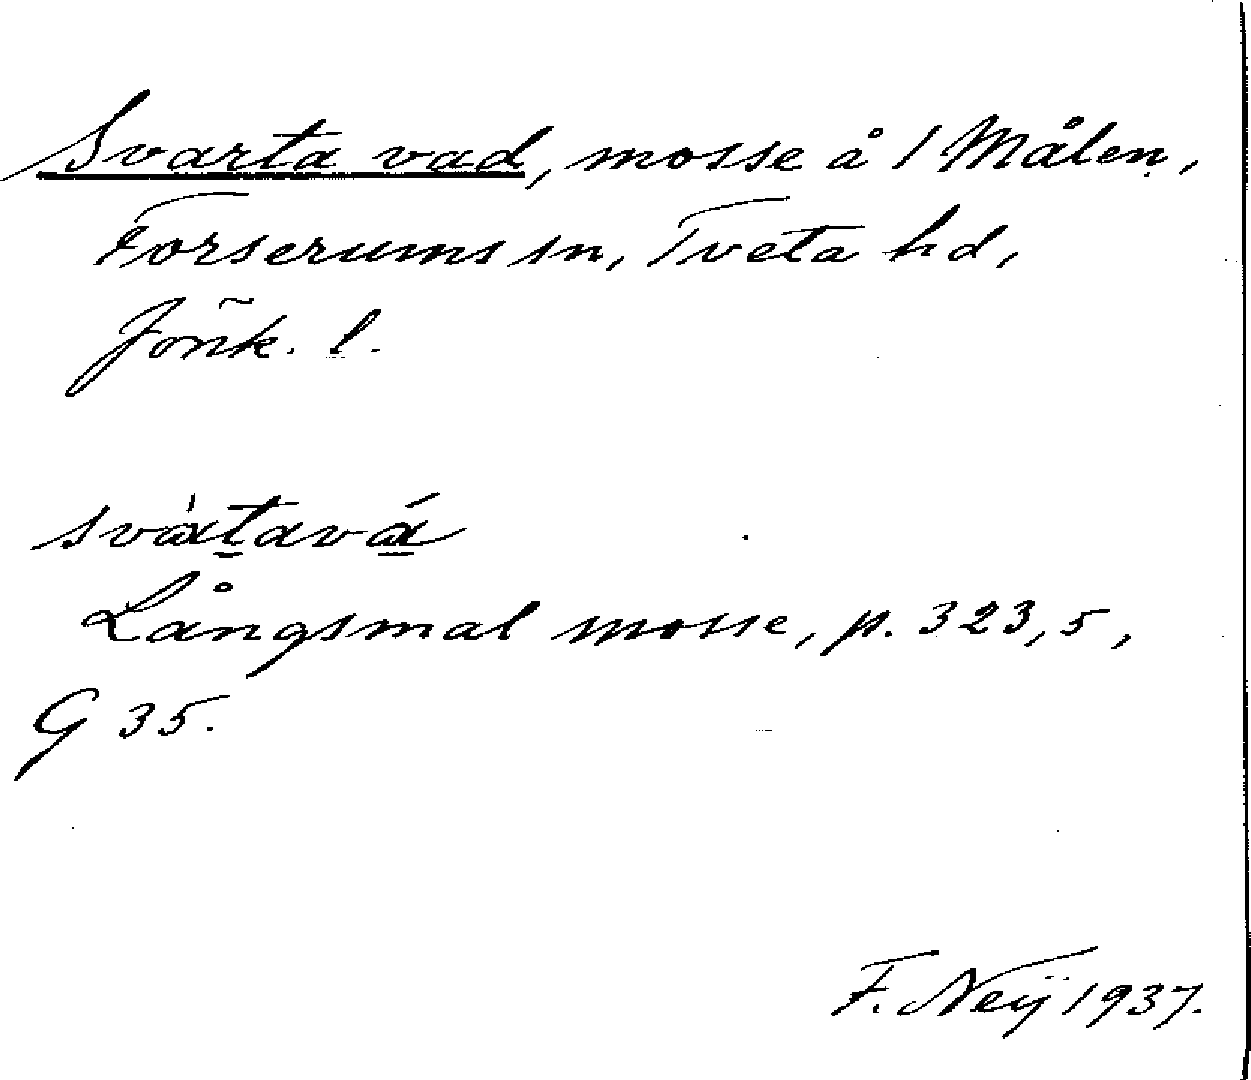 Svarta vad, mosse å 1 Målen,
Forserums sn, Tveta hd,
Jönk. l.
svàṯavá̱
Långsmal mosse, p. 323,5,
G 35.
F. Neij 1937.